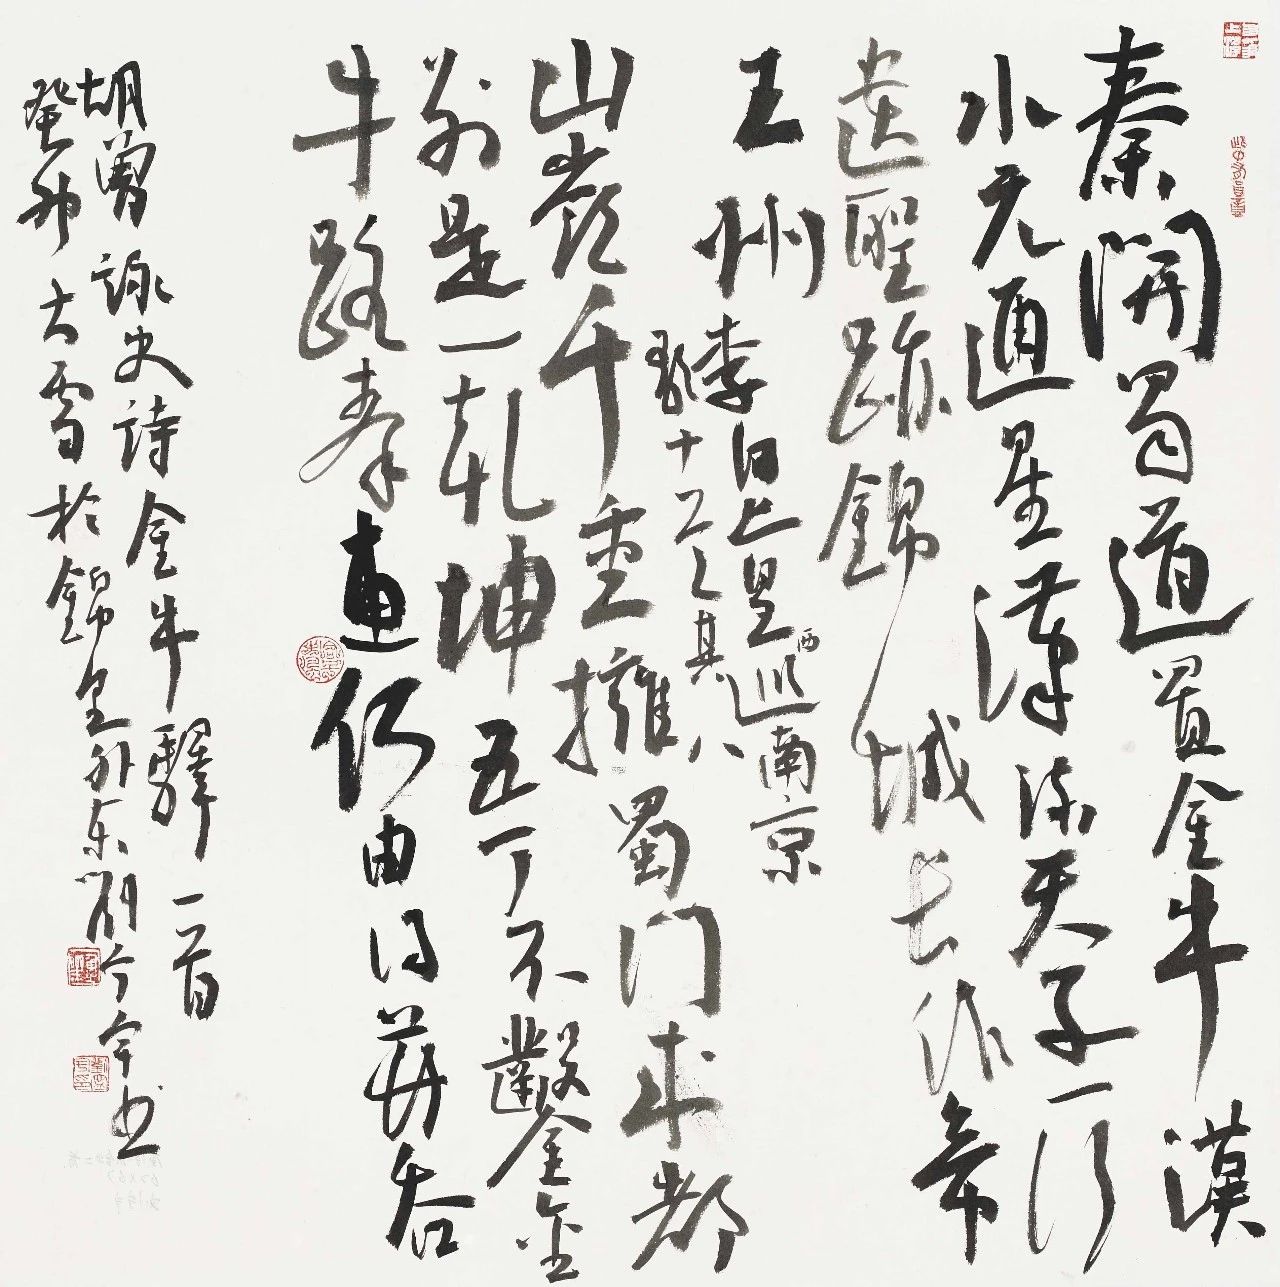 秦開蜀道置金牛漢
水元通星漢流天子一行
遺聖跡錦城長作帝
王州
李白上皇西巡南京
歌十首之其八
山嶺千重擁蜀門成都
别是一乾坤五丁不鑿金
牛路秦惠何由得并吞
胡曾詠史詩金牛驛一首
癸卯大雪於錦里外東
书